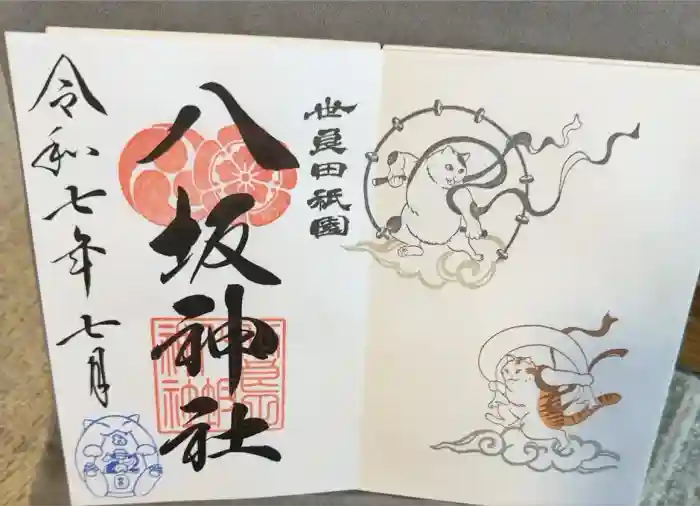 世良田祇園
八坂神社
令和七年七月